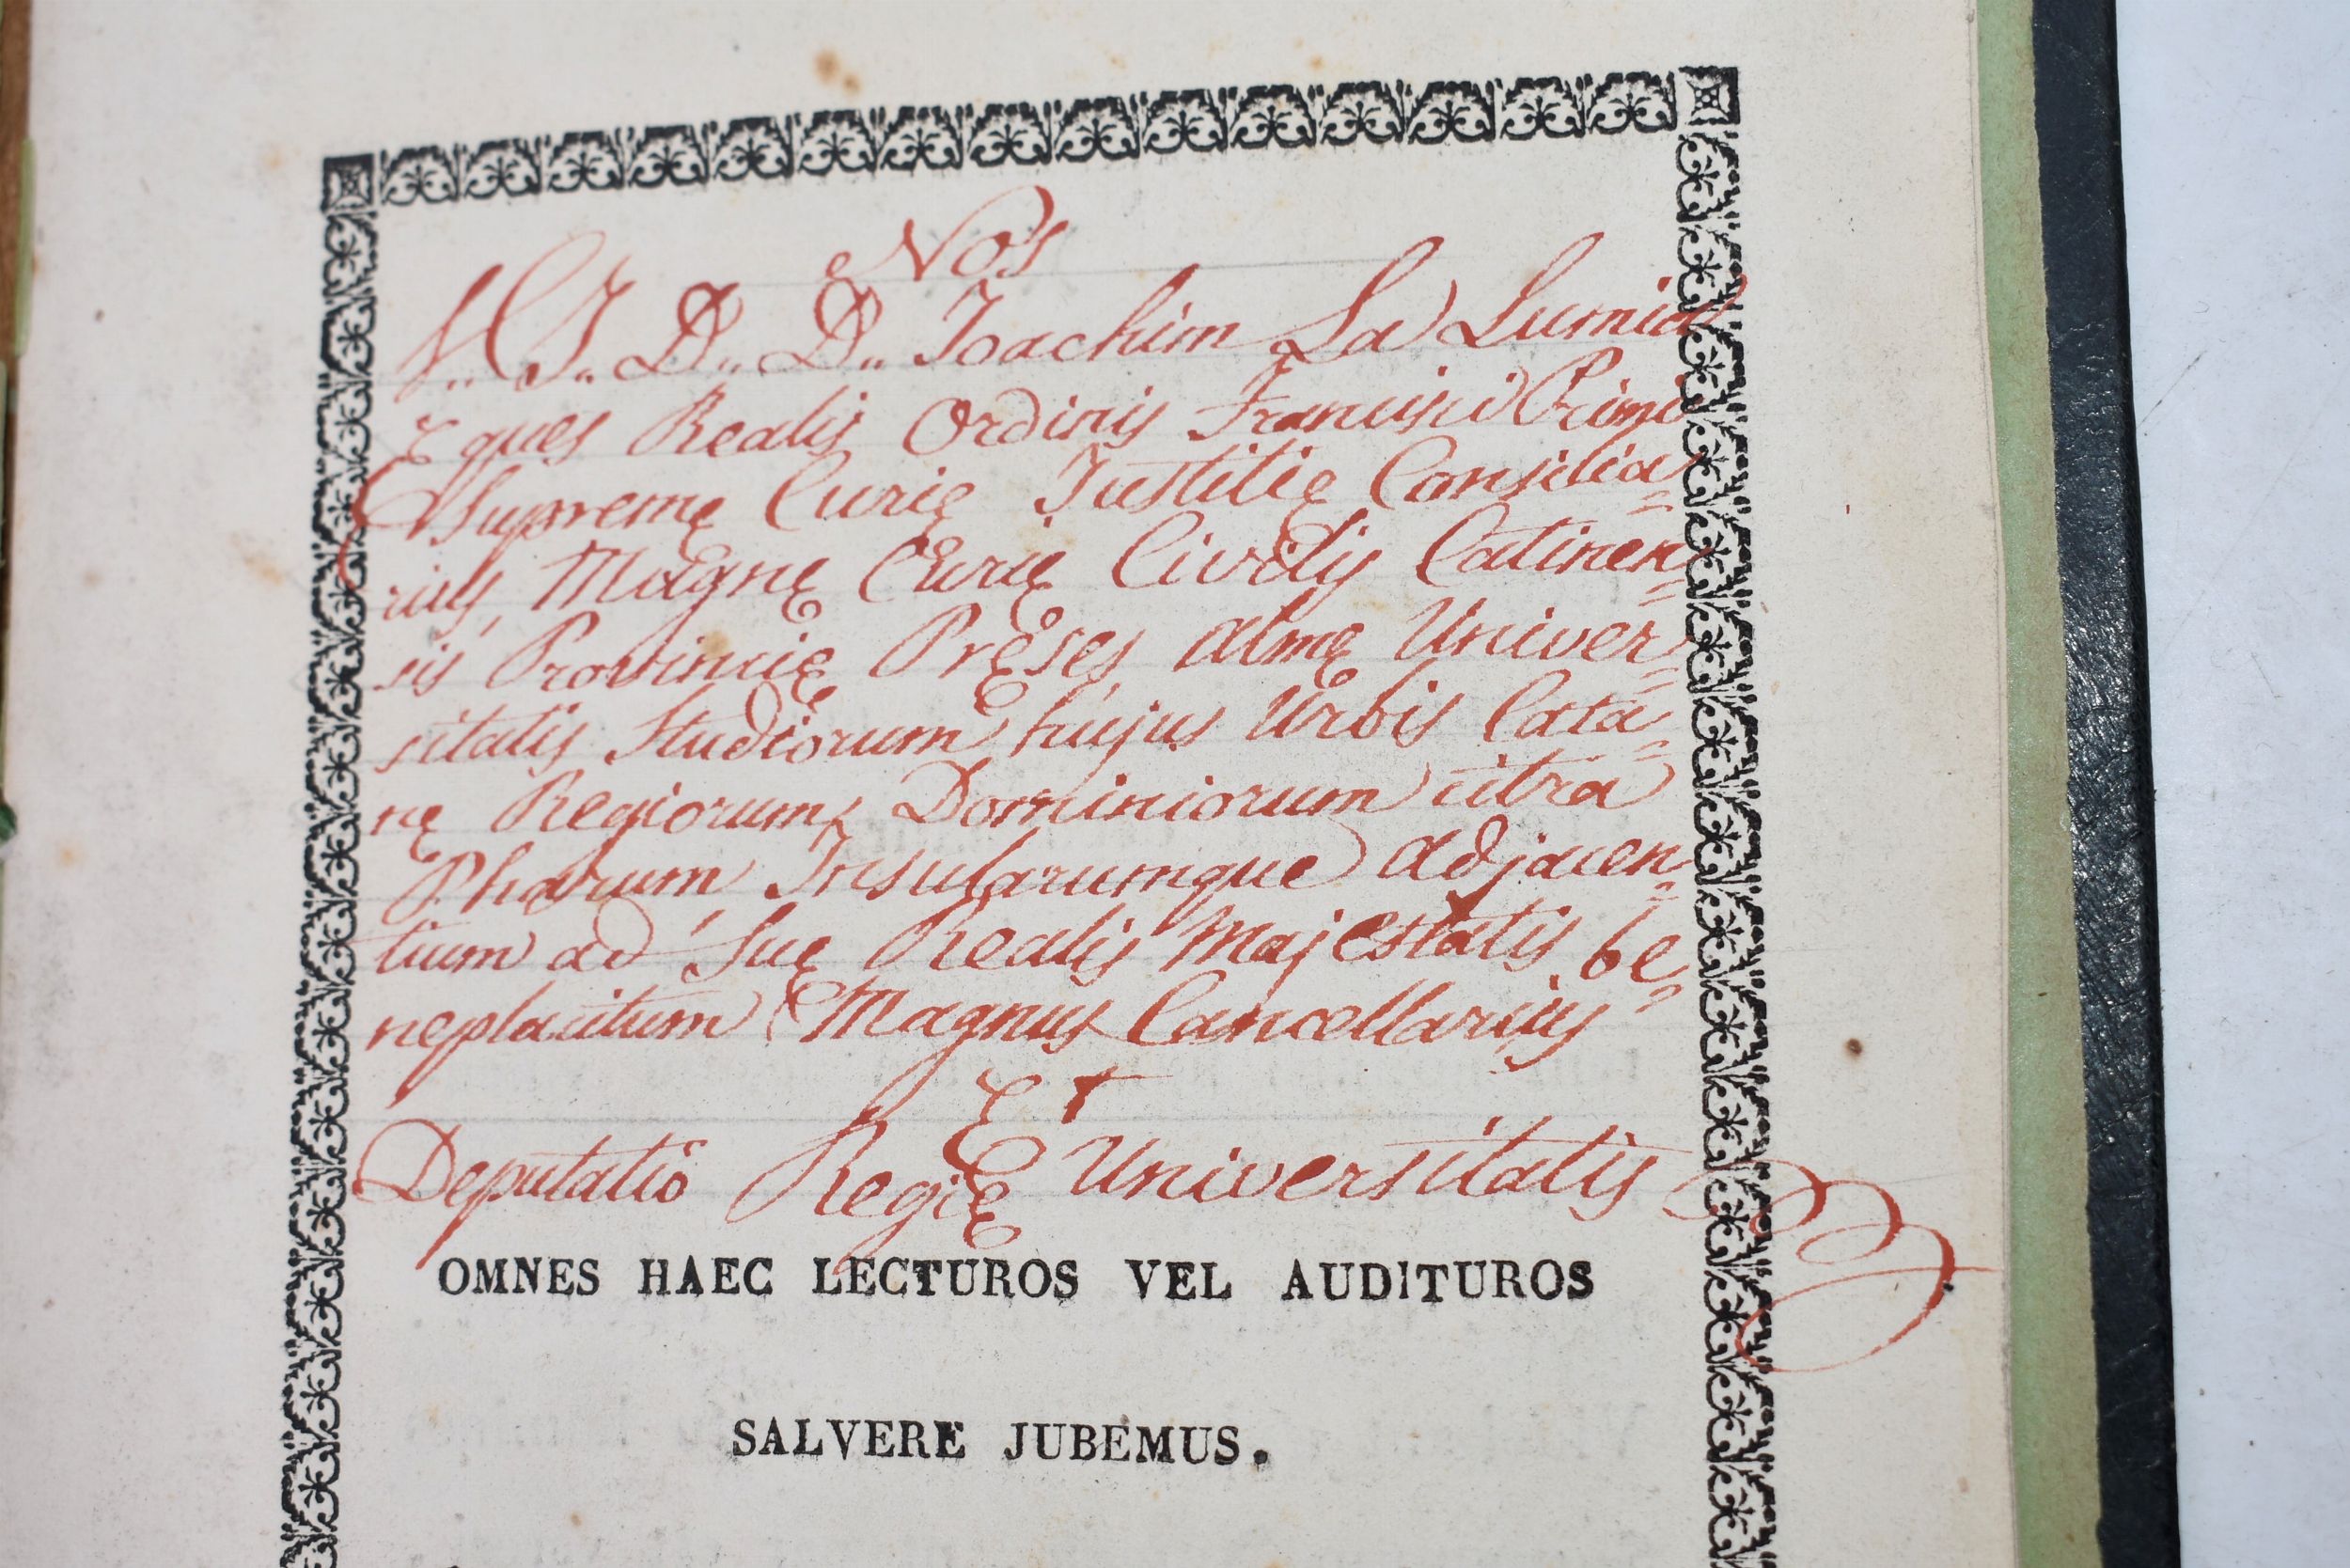 Nos
V. J. D. D. Joachim La Lumia
Eques Realis Ordinis Francisci Primi
Supremę Curię Justitię Consilia=
rius, Magnę Curię Civilis Catinen=
sis Provincię Pręses, almę Univer=
sitatis Studiorum hujus Urbis Cata=
nę Regiorum, Dominiorum citra
Pharum Insularumque adjacen=
tium ad Suę Realis Majestatis be=
neplacitum Magnus Cancellarius
Et
Deputatio Regię Universitatis
OMNES HAEC LECTUROS VEL AUDITUROS
SALVERE JUBEMUS.